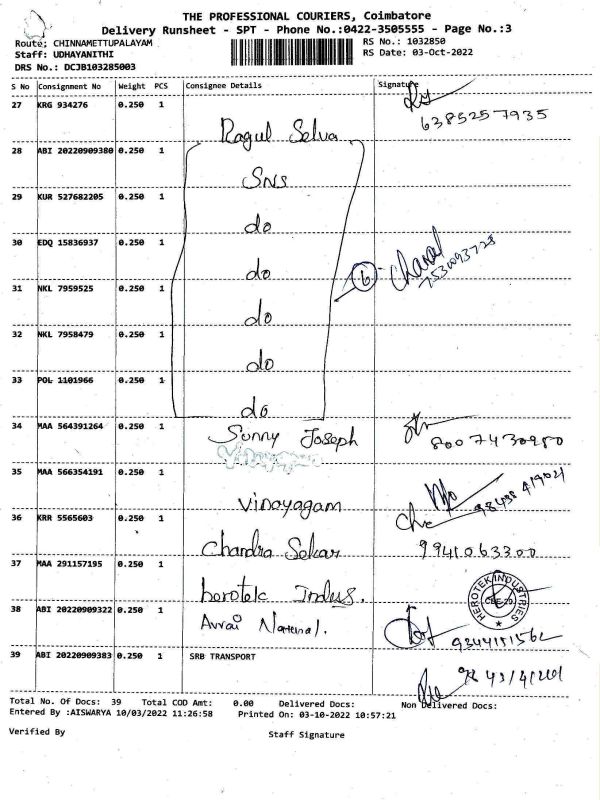 THE PROFESSIONAL COURIERS, Coimbatore
Delivery Runsheet - SPT - Phone No.:0422-3505555 - Page No.:3
Route: CHINNAMETTUPALAYAM RS No.: 1032850
Staff: UDHAYANITHI RS Date: 03-Oct-2022
DRS No.: DCJB103285003
S No Consignment No Weight PCS Consignee Details Signature
27 KRG 934276 0.250 1
6385257935
Ragul Selva
28 ABI 20220909380 0.250 1
SNS
29 KUR 527682205 0.250 1
do
30 EDQ 15836937 0.250 1
do
6
31 NKL 7959525 0.250 1
do
32 NKL 7958479 0.250 1
do
33 POL 1101966 0.250 1
do
34 MAA 564391264 0.250 1
Sunny Joseph 8007430980
35 MAA 566354191 0.250 1
Vinayagam
36 KRR 5565603 0.250 1
Chandra Sekar 9941063300
37 MAA 291157195 0.250 1
herotek Indus.
HEROTEK INDUSTRIES
38 ABI 20220909322 0.250 1
39 ABI 20220909383 0.250 1 SRB TRANSPORT
Total No. Of Docs: 39 Total COD Amt: 0.00 Delivered Docs: Non Delivered Docs:
Entered By :AISWARYA 10/03/2022 11:26:58 Printed On: 03-10-2022 10:57:21
Verified By Staff Signature